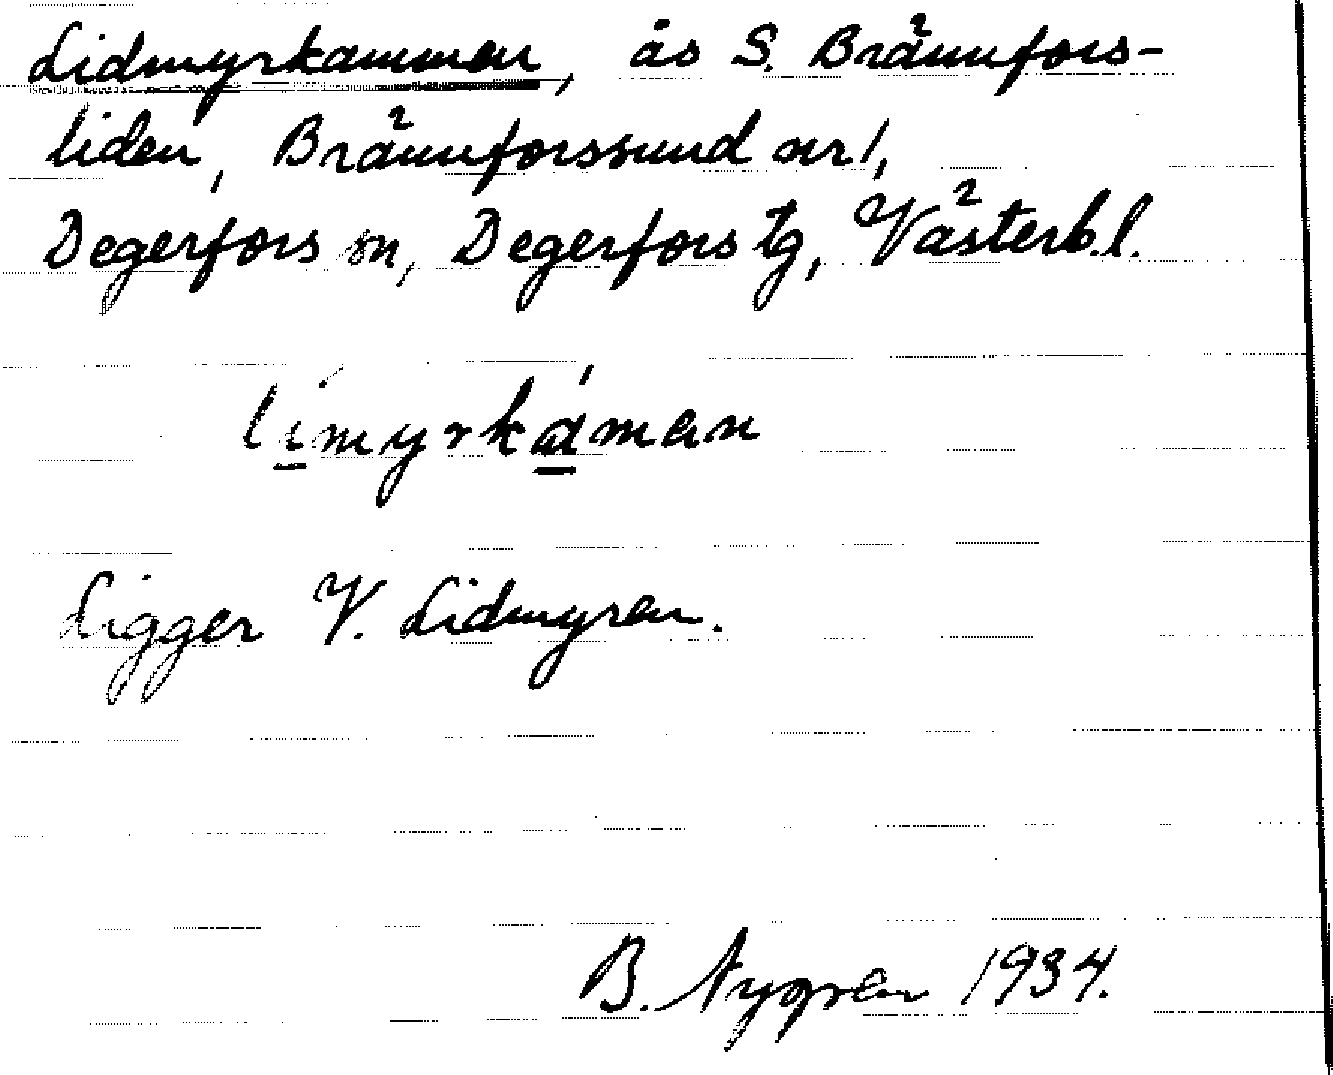 Lidmyrkammen, ås S. Brännfors-
liden, Brännforssund nr 1,
Degerfors sn, Degerfors tg, Västerb. l.
lí̱myrká̱man
Ligger V. Lidmyren.
B. Nygren 1934.